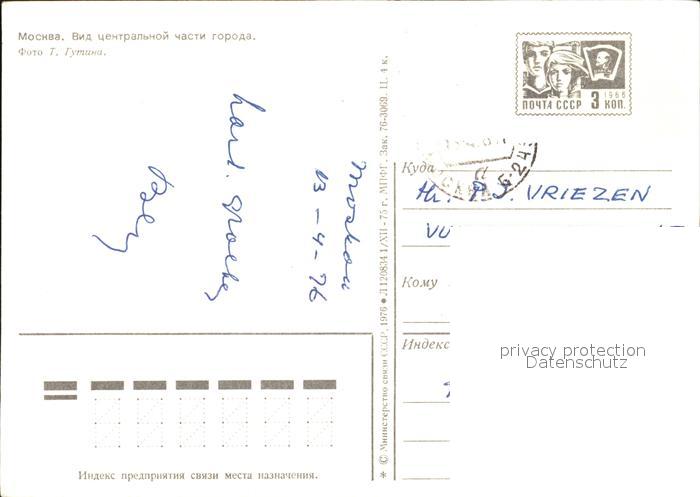 Москва. Вид центральной части города.
Фото Т. Гутина.
Moskou
13-4-76
hart. groeten
ПОЧТА СССР 3 КОП.
1966
Куда
Hr. P.J. VRIEZEN
VU
Кому
Индекс
privacy protection
Datenschutz
© Министерство связи СССР, 1976 ● Л120834 1/XII-75 г. МПФГ. Зак. 76-3069. Ц. 4 к.
Индекс предприятия связи места назначения.